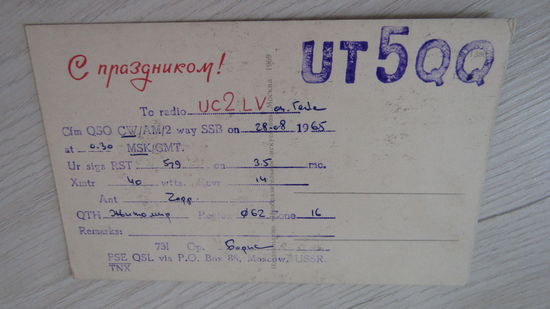 С праздником!
UT5QQ
To radio UC2LV
Cfm QSO CW/AM/2 way SSB on 28-08 1965
at 0.30 MSK/GMT.
Ur sigs RST 579 on 3.5 mc.
Xmtr 40 wtts. Rcvr 14
Ant
QTH Житомир Region 062 Zone 16
Remarks:
73! Op. Борис
PSE QSL via P.O. Box 88, Moscow, USSR.
TNX
Москва 1969